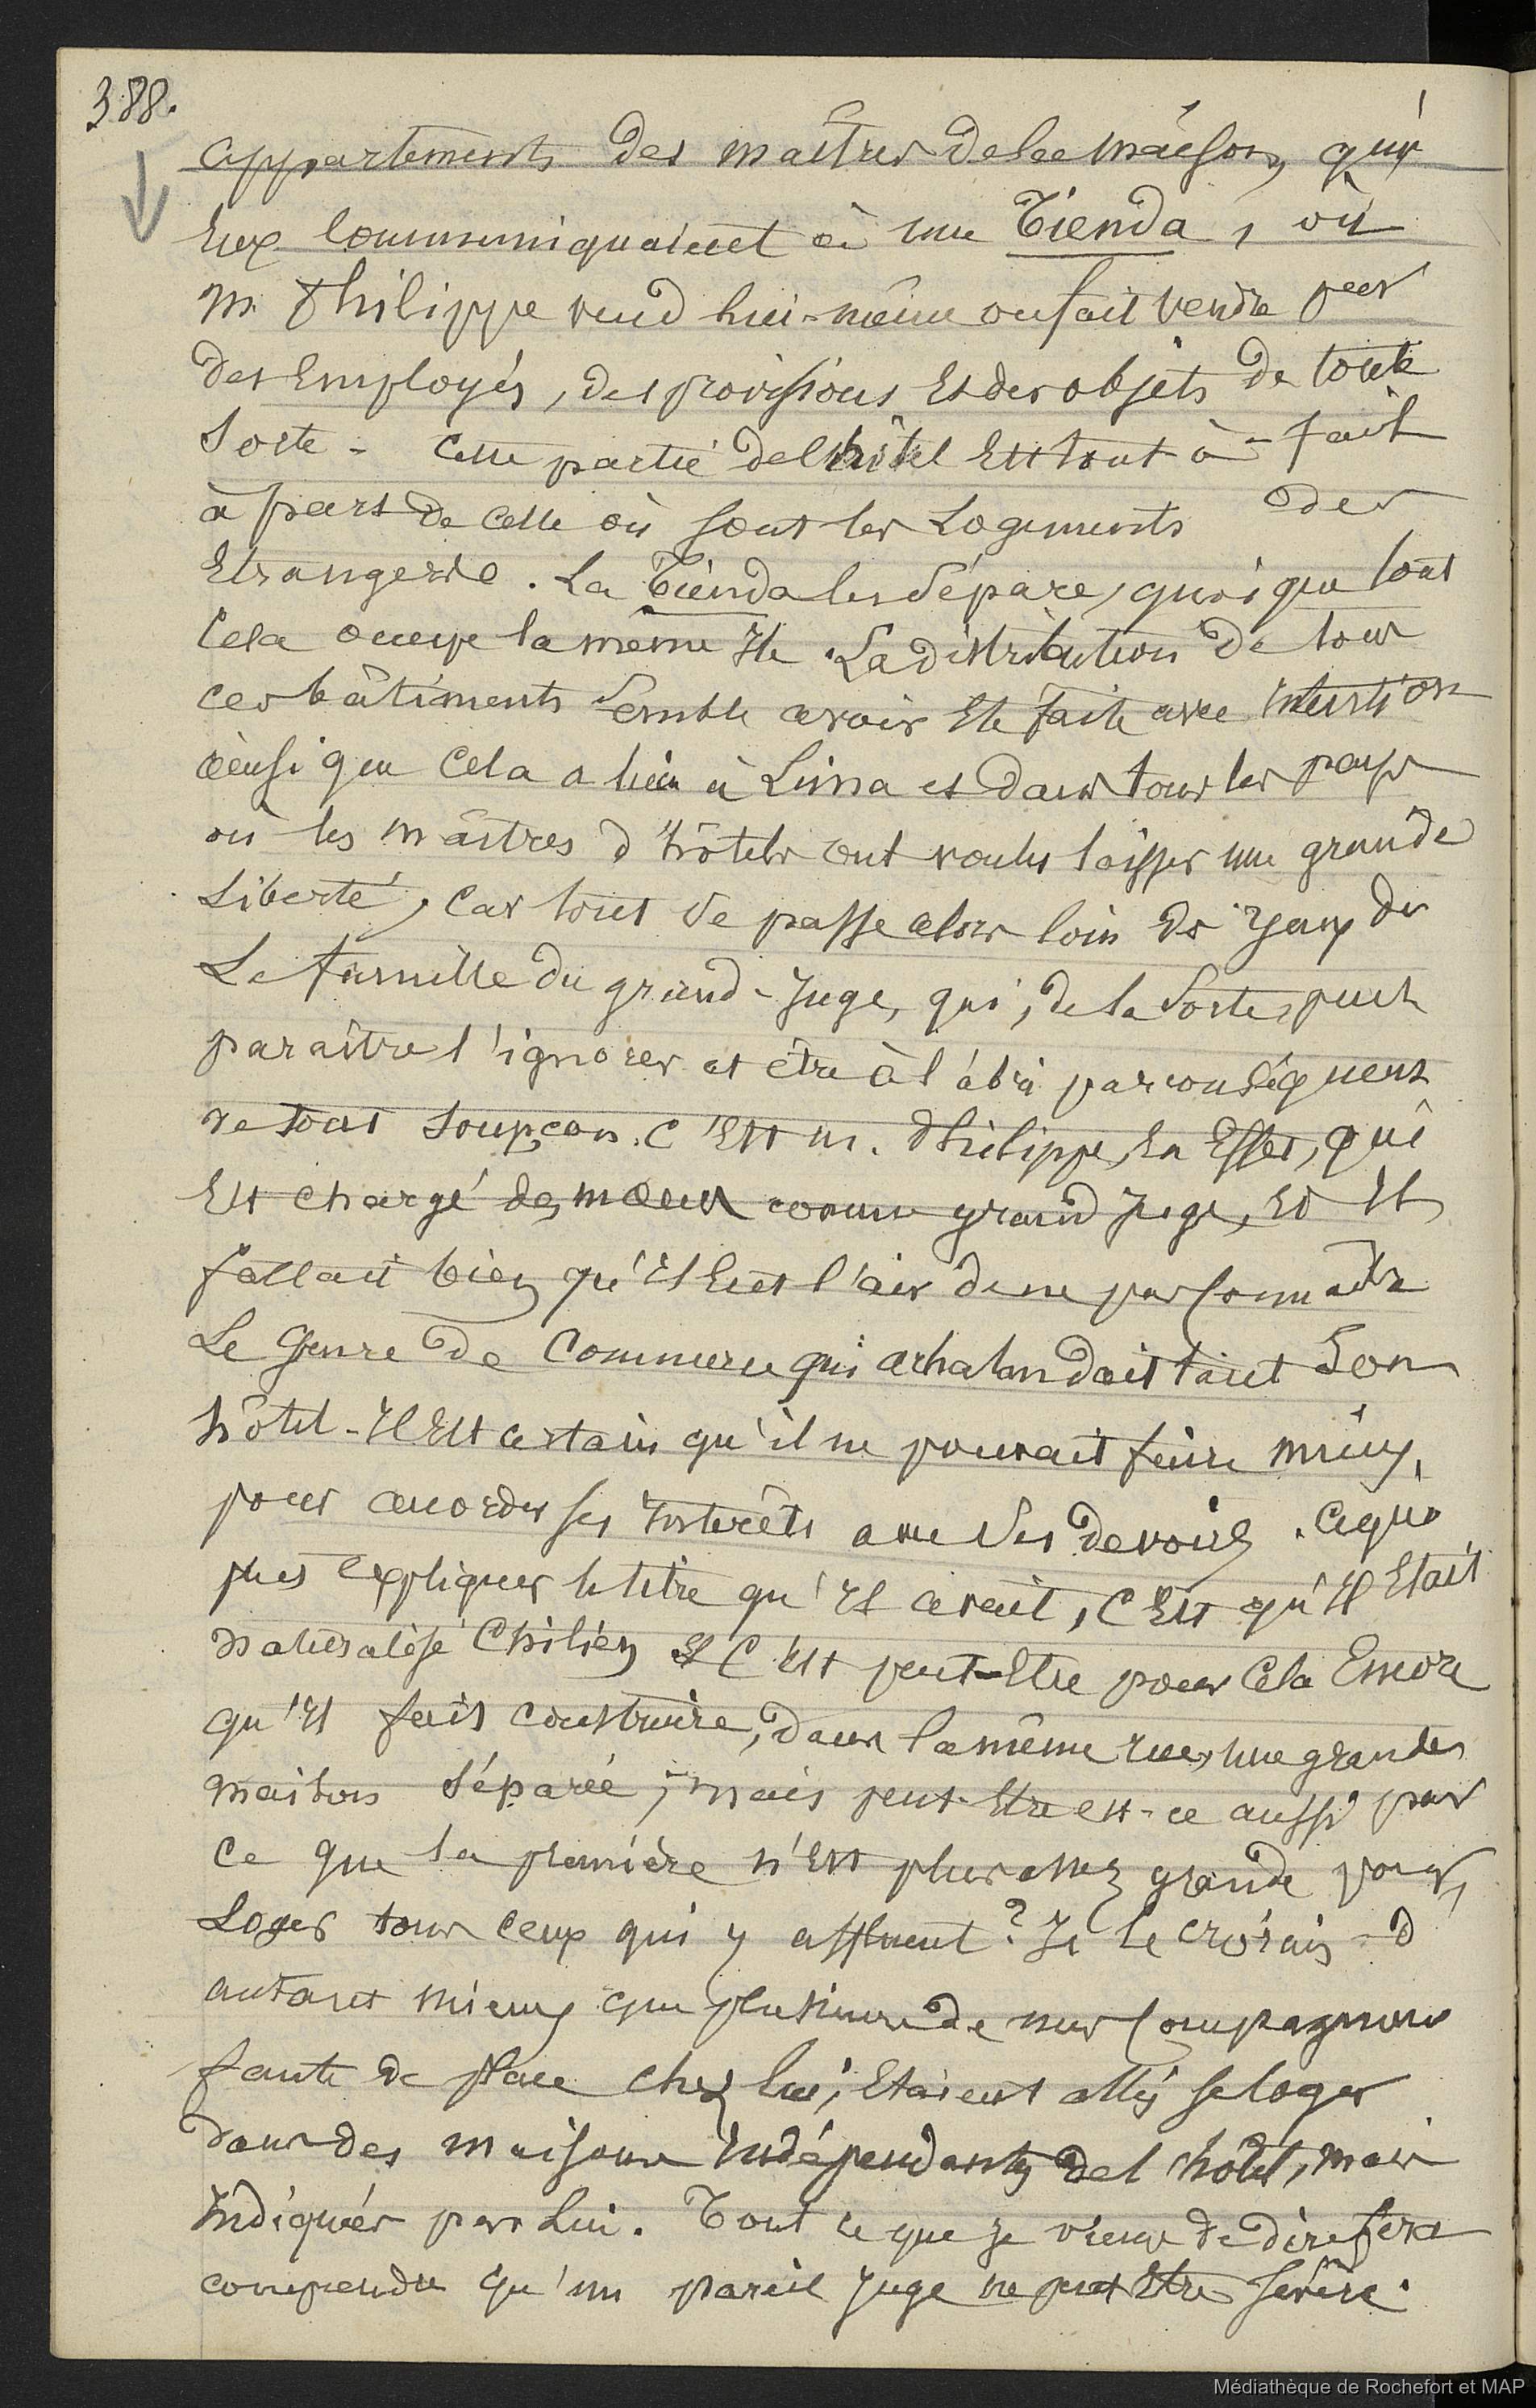 388.
appartements des maîtres de la maison, qui
Eux communiquaient à une Tienda, où
m. Philippe vend lui-même ou fait vendre par
des Employés, des provisions Et des objets de toute
Sorte - Cette partie de l'hôtel Est tout à-fait
à part de celle où sont les Logements des
Etrangers. La Tienda les sépare, quoique tout
Cela occupe la même Ile. La distribution de tous
ces bâtiments semble avoir Eté faite avec intention
ainsi que Cela a lieu à Lima et dans tous les pays
où les maîtres d'hôtels ont voulu laisser une grande
Liberté, Car tout se passe alors loin des yeux de
La famille du grand-Juge, qui, de la Sorte, peut
paraître l'ignorer et être à l'abri par conséquent
de tout soupçon. C'Est m. Philippe, En Effet, qui
Est chargé des mœurs comme grand Juge, Et Il
fallait bien qu'Il Eut l'air de ne pas connaître
Le Genre de Commerce qui achalandait tant Son
hôtel - Il Est certain qu'il ne pouvait faire mieux,
pour accorder ses Intérêts avec Ses devoirs. Ce qui
peut Expliquer le titre qu'Il avait, C'Est qu'Il Etait
naturalisé Chilien Et C'Est peut-Etre pour Cela Encore
qu'Il fait construire, dans la même rue, une grande
maison séparée ; mais peut-Etre est-ce aussi par
ce que la première n'Est plus assez grande pour
Loger tous ceux qui y affluent ? Je le croirais d'
autant mieux que plusieurs de mes Compagnons
faute de place chez lui, Etaient allés se loger
dans des maisons Indépendantes de l'hôtel, mais
Indiquées par Lui. Tout ce que je viens de dire fera
comprendre qu'un pareil Juge ne peut Etre sévère.
Médiathèque de Rochefort et MAP